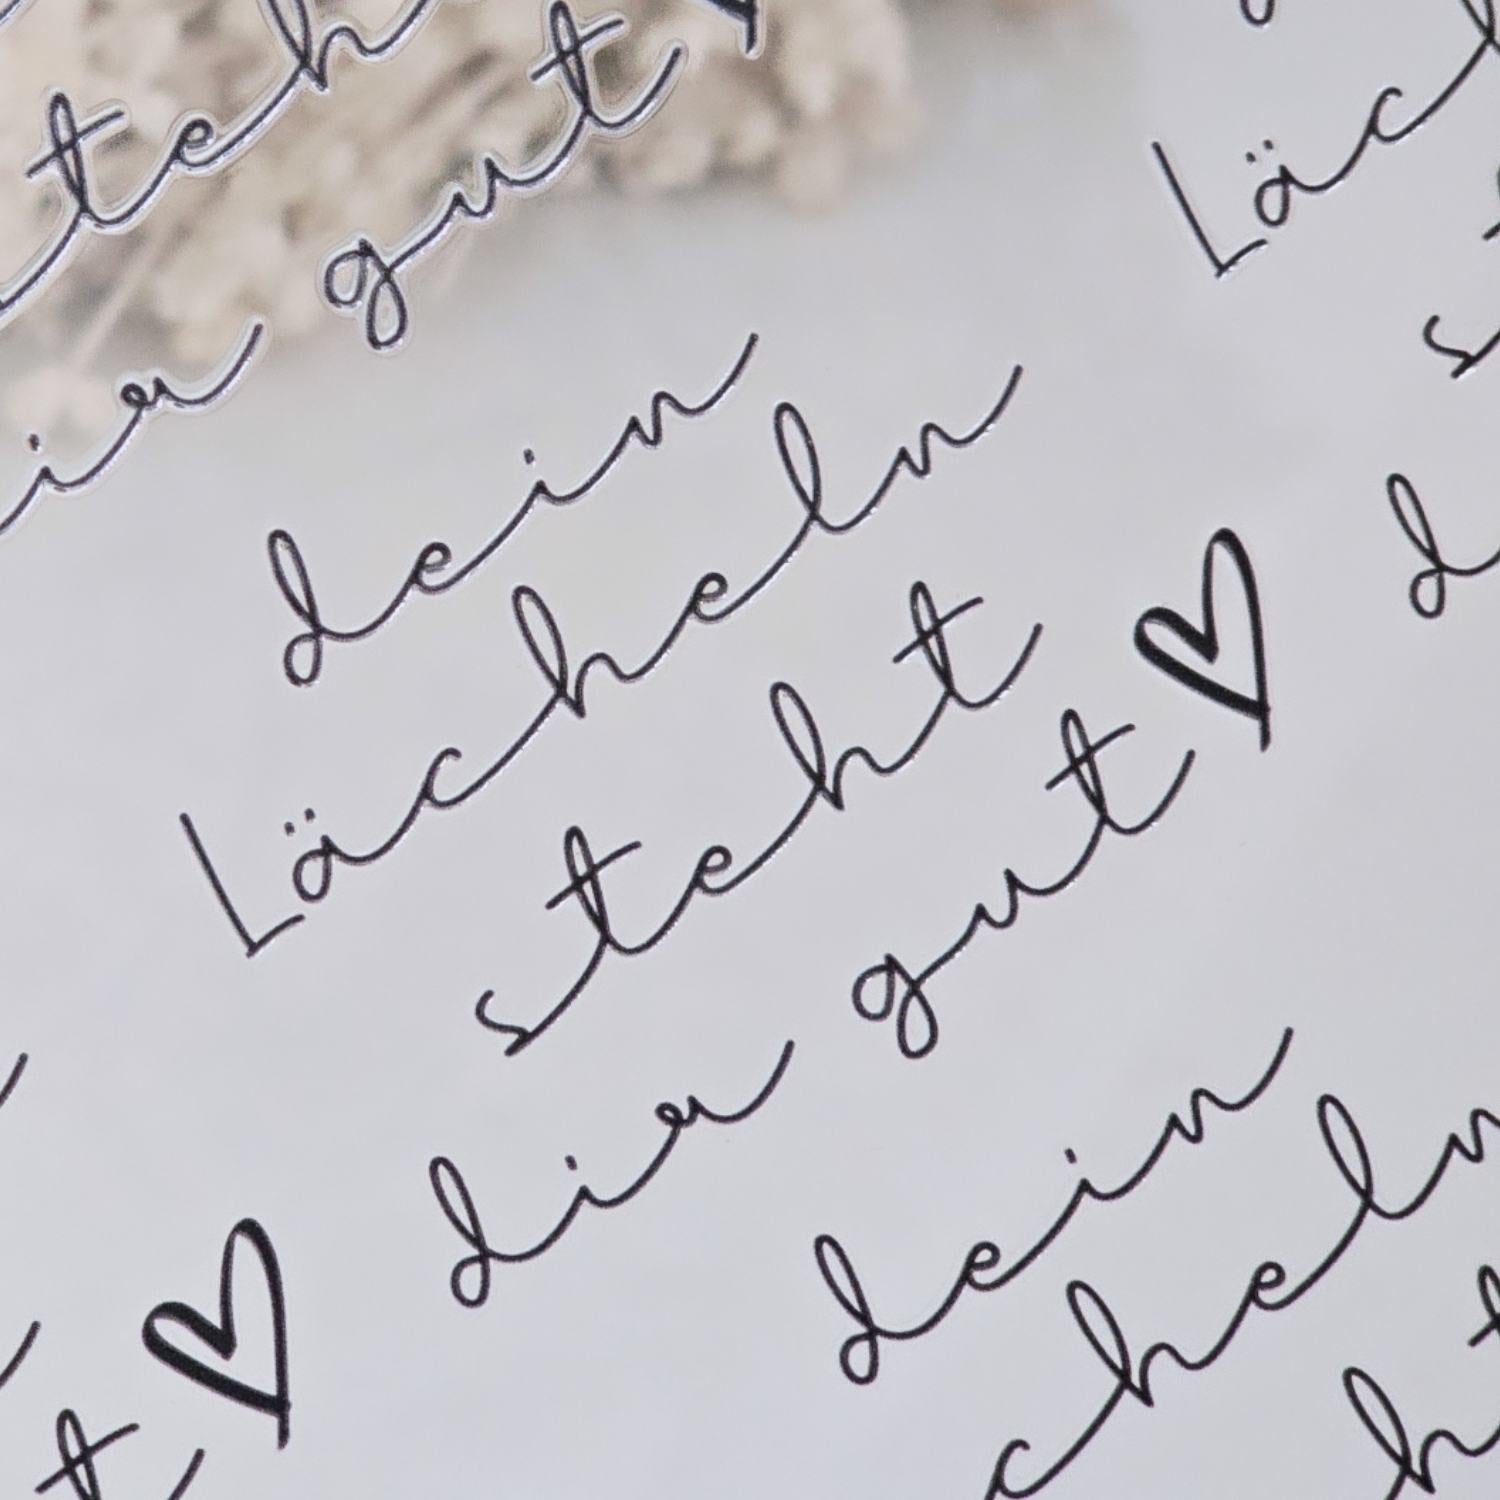 teh
gut
ir
Läch
s
d
dein
Lächeln
steht
dir gut
dein
cheln
ht
t